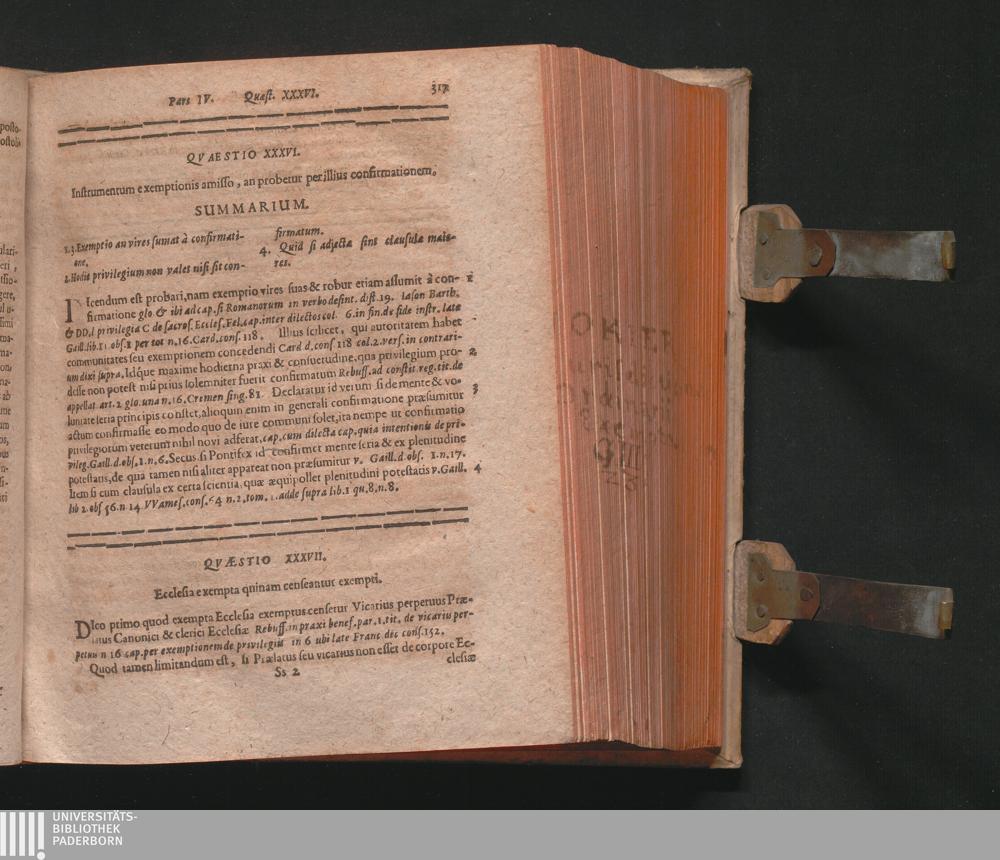 Pars IV. Quæst. XXXVI. 317
QVAESTIO XXXVI.
Instrumentum exemptionis amisso, an probetur per illius confirmationem.
SUMMARIUM.
1.3. Exemptio an vires sumat à confirmati-
one.
2. Hodie privilegium non valet nisi sit con-
firmatum.
4. Quid si adjectæ sint clausulæ maio-
res.
DIcendum est probari, nam exemptio vires suas & robur etiam assumit à con- 1
firmatione glo & ibi ad cap. si Romanorum in verbo desint. dist. 19. Iason Barth.
& DD. l privilegia C de sacros. Eccles. Fel. cap. inter dilectos col. 6. in fin. de fide instr. late
Gaill. lib. 1. obs. 1 per tot n. 16. Card. cons. 118. Illius scilicet, qui autoritatem habet
communitates seu exemptionem concedendi Card d. cons. 118 col. 2. vers. in contrari-
um dixi supra. Idque maxime hodierna praxi & consuetudine, qua privilegium pro- 2
desse non potest nisi prius solemniter fuerit confirmatum Rebuff. ad constit. reg. tit. de
appellat art. 2 glo. una n. 16. Cremen sing. 81. Declaratur id verum si de mente & vo- 3
luntate seria principis constet, alioquin enim in generali confirmatione præsumitur
actum confirmasse eo modo quo de iure communi solet, ita nempe ut confirmatio
privilegiorum veterum nihil novi adferat, cap. cum dilecta cap. quia intentionis de pri-
vileg. Gaill. d. obs. 1. n. 6. Secus si Pontifex id confirmet mente seria & ex plenitudine
potestatis, de qua tamen nisi aliter appareat non præsumitur v. Gaill. d obs. 1. n. 17.
Item si cum clausula ex certa scientia, quæ æquipollet plenitudini potestatis v. Gaill. 4
lib 2. obs 56. n 14 VVames. cons. 64 n. 2. tom. 1. adde supra lib. 1 qu. 8. n. 8.
QVÆSTIO XXXVII.
Ecclesia exempta quinam censeantur exempti.
DIco primo quod exempta Ecclesia exemptus censetur Vicarius perpetuus Præ-
latus Canonici & clerici Ecclesiæ Rebuff. in praxi benef. par. 1. tit. de vicarius per-
petuu n 16 cap. per exemptionem de privilegiis in 6 ubi late Franc dec cons. 152.
Quod tamen limitandum est, si Prælatus seu vicarius non esset de corpore Ec-
Ss 2 clesiæ
UNIVERSITÄTS-
BIBLIOTHEK
PADERBORN